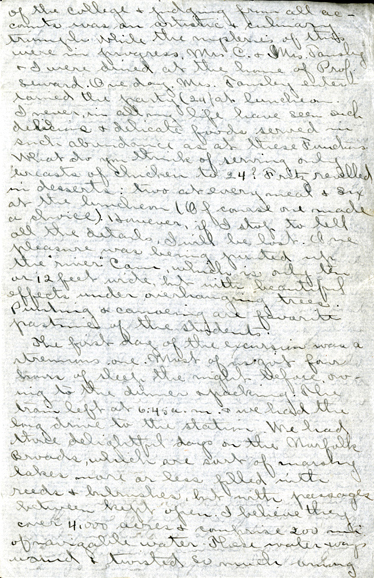 of the college & judging from all ac-
counts was an artistic & culinary
triumph. While the mysteries of this
were in progress, Mr. C. & Mrs. Tansley
& I were dined at the home of Prof.
Seward. One day, Mrs. Tansley enter-
tained the party (24) at luncheon.
I never, in all my life have seen such
delicious & delicate foods served in
such abundance as at these functions.
What do you think of serving only
breasts of chicken to 24? Fritz revelled
in desserts: two at every meal & six
at the luncheon (Of course one made
a choice). However, if I stop to tell
all the details, I will be lost. One
pleasure was being punted up
the river Cam, which is only ten
or 12 feet wide, but with beautiful
effects under overhanging trees.
Punting & canoeing are favorite
pastimes of the students.
The first day of the excursion was a
strenuous one. Most of us got four
hours of sleep the night before, ow-
ing to the dinner & packing. The
train left at 6:45 a.m. & we had the
long drive to the station. We had
three delightful days on the Norfolk
Broads, which are sort of marshy
lakes more or less filled with
reeds & bulrushes, but with passages
between kept open. I believe they
cover 4,000 acres & comprise 200 mi
of navigable water. These water ways
wind & twisted so much among